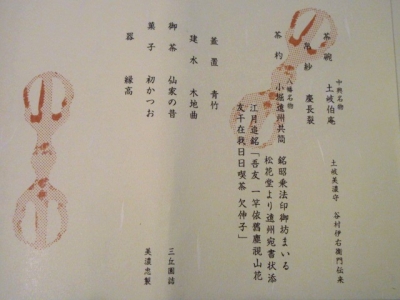 茶碗 中興名物 土岐伯庵 土岐美濃守 谷村伊右衛門伝来
帛紗 慶長裂
茶杓 八幡名物 小堀遠州共筒 銘昭乗法印御坊まいる
松花堂より遠州宛書状添
江月追銘「吾友 一竿依舊塵視山花
友午在我日日喫茶 欠伸子」
蓋置 青竹
建水 木地曲
御茶 仙家の昔 三丘園詰
菓子 初かつお 美濃忠製
器 縁高